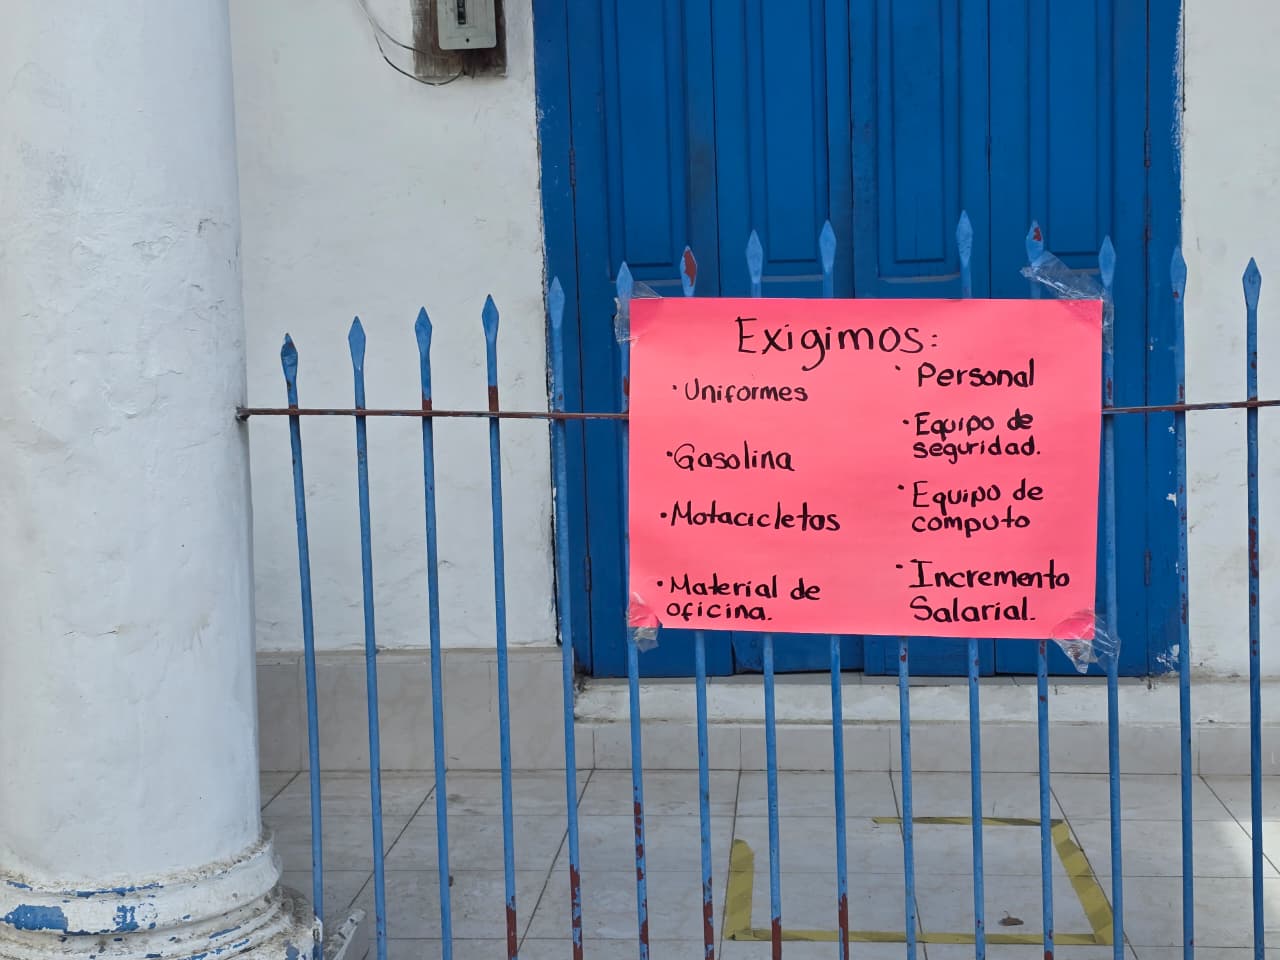 Exigimos:
· Uniformes
· Gasolina
· Motocicletas
· Material de
oficina.
· Personal
· Equipo de
seguridad.
· Equipo de
computo
· Incremento
Salarial.